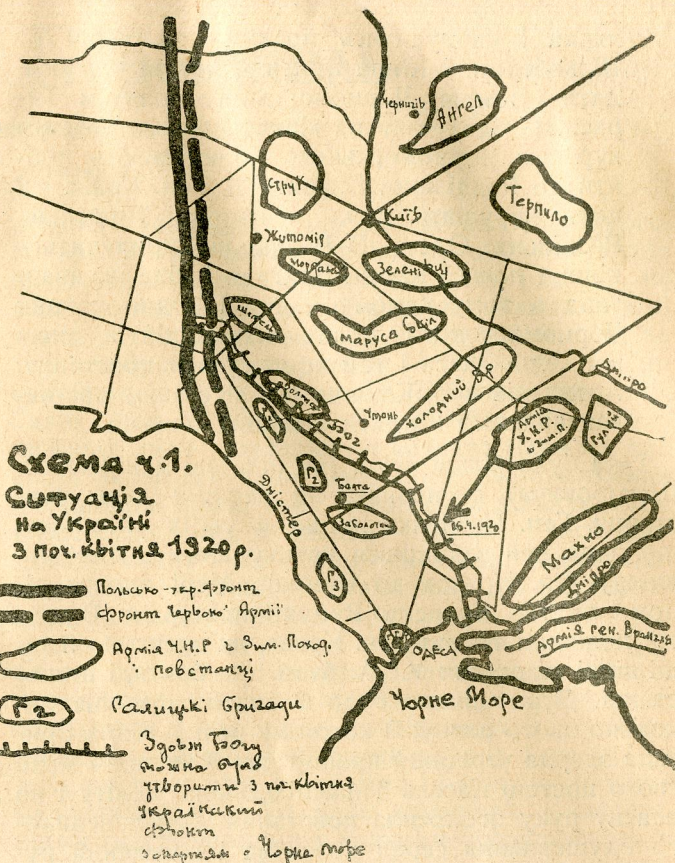 Чернигів
Ангел
Струк
Терпило
Київ
Житомір
Мордалі
Зелені
Шепель
Маруса
Дніпро
Холодний Яр
Умань
Волинец
БОГ
Г1
Армія
У.Н.Р.
з Зим. П.
Гулий
Г2
Балта
Дністер
Заболотн
15.4.1920
Махно
Дніпро
Г3
Армія ген. Врангля
ОДЕСА
Чорне Море
Схема ч.1.
Ситуація
на Україні
з поч. квітня 1920 р.
Польсько-укр. фронт
фронт Червоної Армії
Армія У.Н.Р з Зим. Поход.
повстанці
Г2
Галицкі бригади
Здовж Богу
можна було
утворити з поч. квітня
український
фронт
з опертям о Чорне море